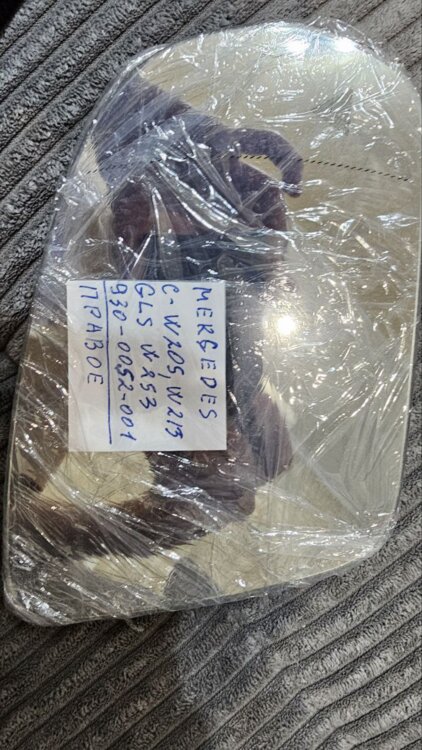 MERCEDES
C-W205, W213
GLS W253
930-0052-001
ПРАВОЕ